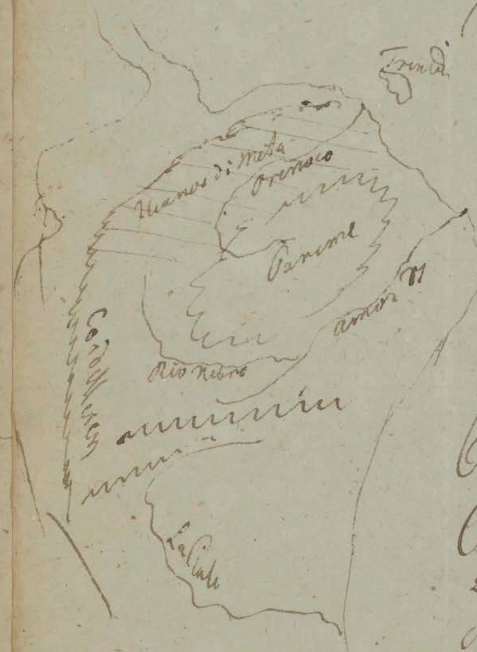 Trinid
Llanos di Meta
Orenoco
Parime
Amaz
Cordilleren
Rio Nebro
La Plate